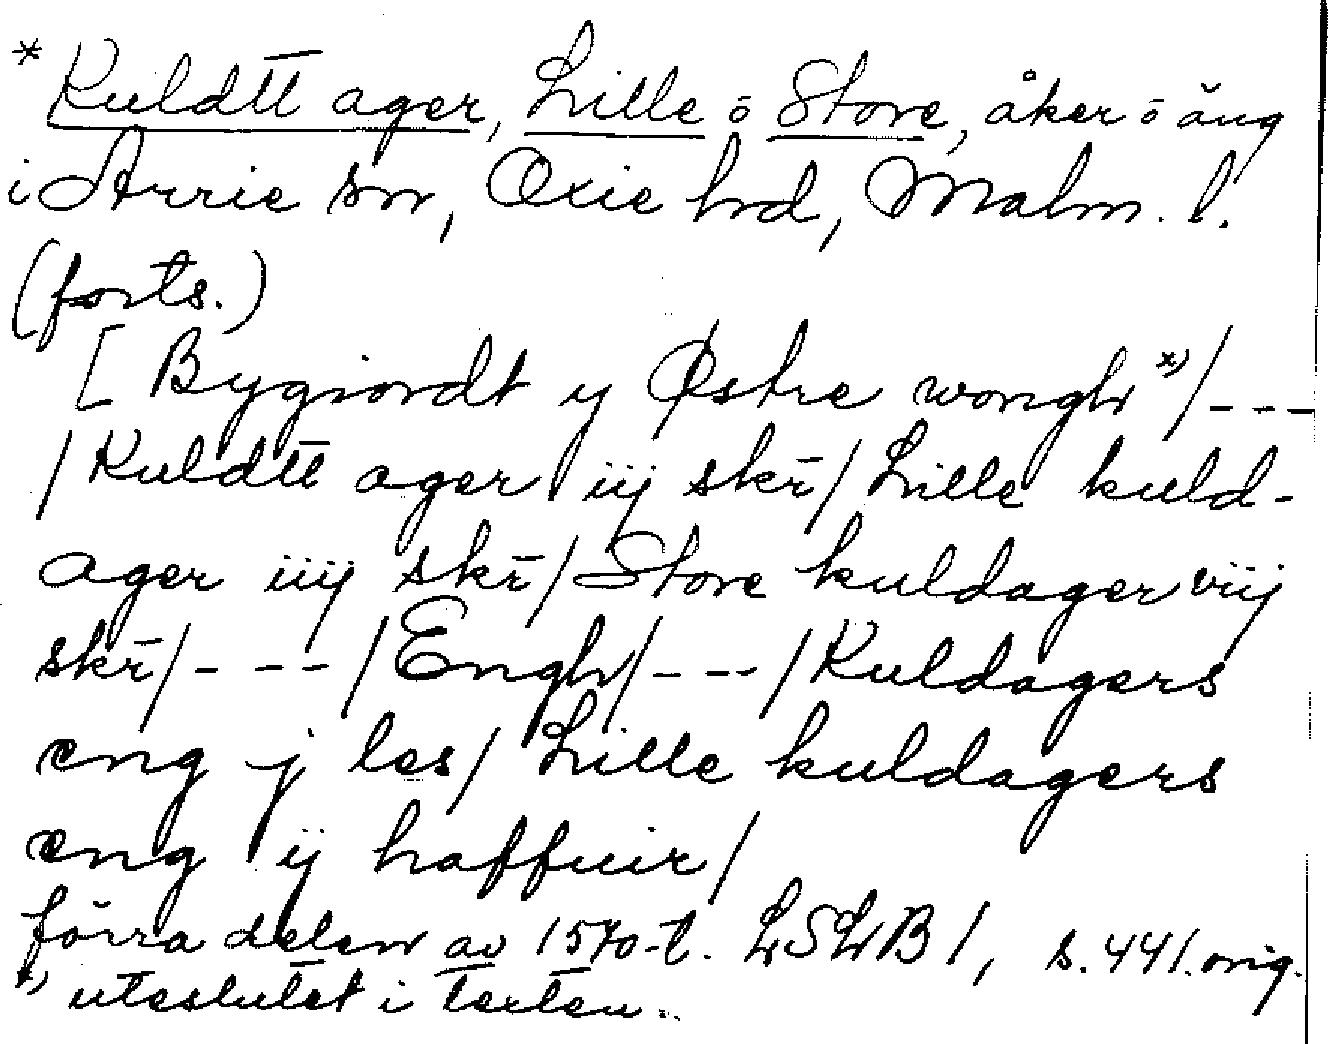 * Kuldtt ager, Lille ō Store, åker ō äng
i Arrie sn, Oxie hd, Malm. l.
(forts.)
[ Bygiordt y Østre wongh *)/ - - -
/ Kuldtt ager iij skr̄/ Lille kuld-
ager iiij skr̄/ Store kuldager viij
skr̄/ - - - / Engh/ - - - / Kuldagers
eng j les/ Lille kuldagers
eng ij haffuir/
förra delen av 1570-t. LSLB 1, s. 441. orig.
*) uteslutet i texten.